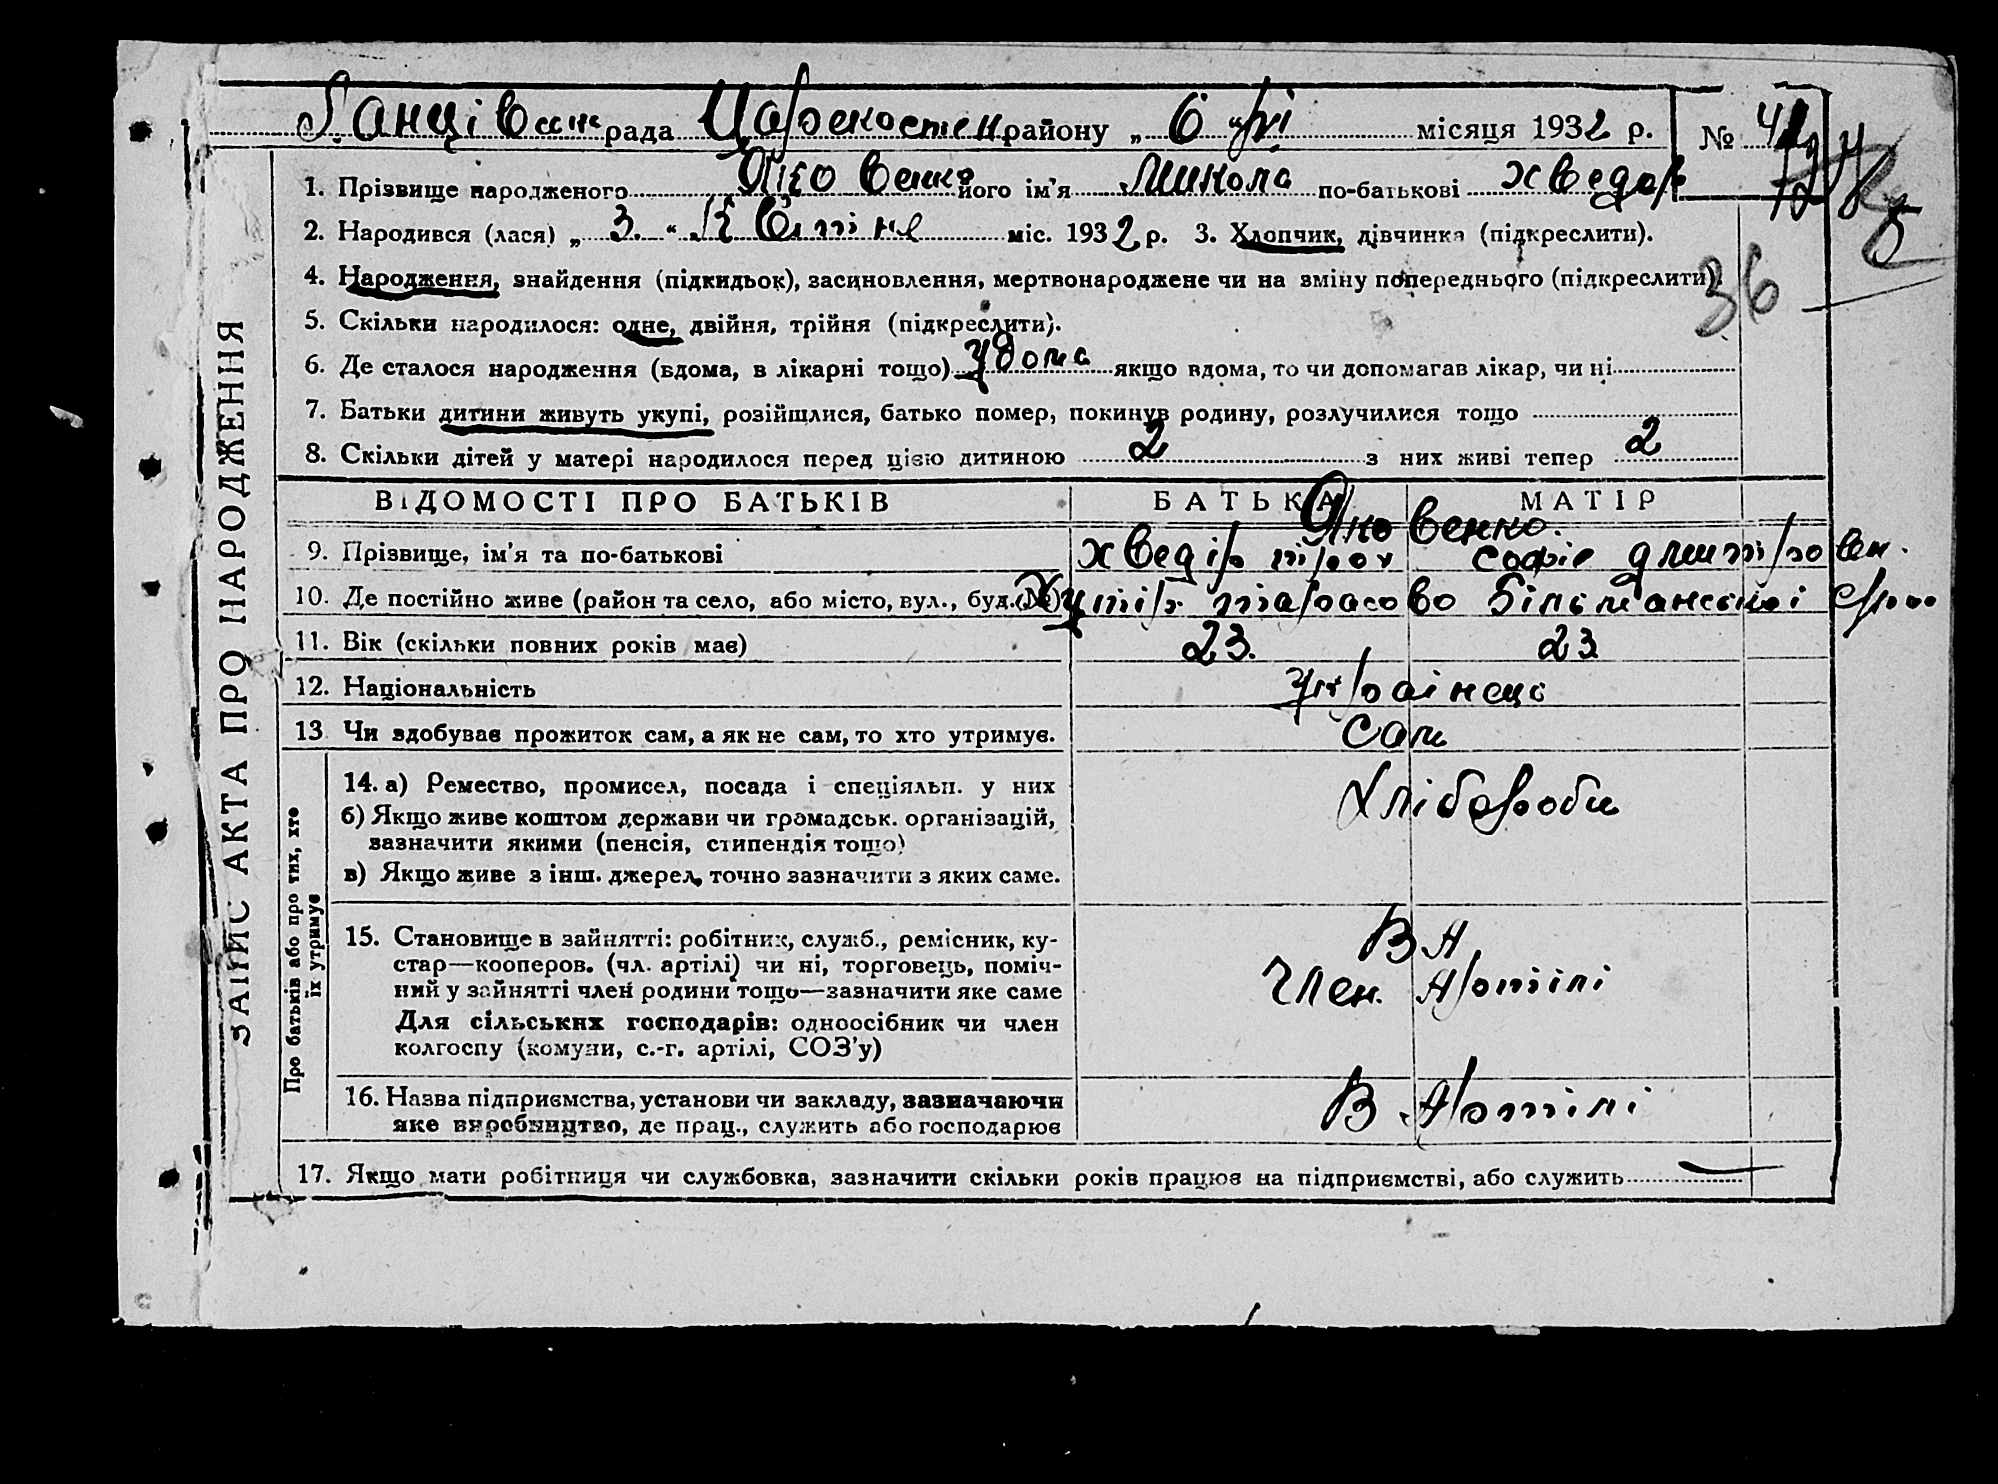 Ганцівська рада Царекостен району „ 6 “ місяця 1932 р. №
1. Прізвище народженого Яковенко його ім'я Микола по-батькові Хведор
2. Народився (лася) „ 3. “ Квітня міс. 1932 р. 3. Хлопчик, дівчинка (підкреслити).
4. Народження, знайдення (підкидьок), засиновлення, мертвонароджене чи на зміну попереднього (підкреслити).
36
5. Скільки народилося: одне, двійня, трійня (підкреслити).
6. Де сталося народження (вдома, в лікарні тощо) удома якщо вдома, то чи допомагав лікар, чи ні
7. Батьки дитини живуть укупі, розійшлися, батько помер, покинув родину, розлучилися тощо
8. Скільки дітей у матері народилося перед цією дитиною 2 з них живі тепер 2
ЗАПИС АКТА ПРО НАРОДЖЕННЯ
ВІДОМОСТІ ПРО БАТЬКІВ БАТЬКА МАТІР
Яковенко.
9. Прізвище, ім'я та по-батькові Хведір Троч Софіє Дмитровен.
10. Де постійно живе (район та село, або місто, вул., буд. №) Хутір Тарасово
11. Вік (скільки повних років має) 23. 23
12. Національність Українець
13 Чи здобував прожиток сам, а як не сам, то хто утримує. Сам
Про батьків або про тих, хто їх утримує
14. а) Ремество, промисел, посада і спеціяльн. у них Хлібороби
б) Якщо живе коштом держави чи громадськ. організацій,
зазначити якими (пенсія, стипендія тощо)
в) Якщо живе з інш. джерел, точно зазначити з яких саме.
15. Становище в зайнятті: робітник, служб., ремісник, ку-
стар—кооперов. (чл. артілі) чи ні, торговець, поміч-
ний у зайнятті член родини тощо—зазначити яке саме
Для сільських господарів: одноосібник чи член
колгоспу (комуни, с.-г. артілі, СОЗ'у)
Член. Артілі
16. Назва підприємства, установи чи закладу, зазначаючи
яке виробництво, де прац., служить або господарює
В Артілі
17. Якщо мати робітниця чи службовка, зазначити скільки років працює на підприємстві, або служить —